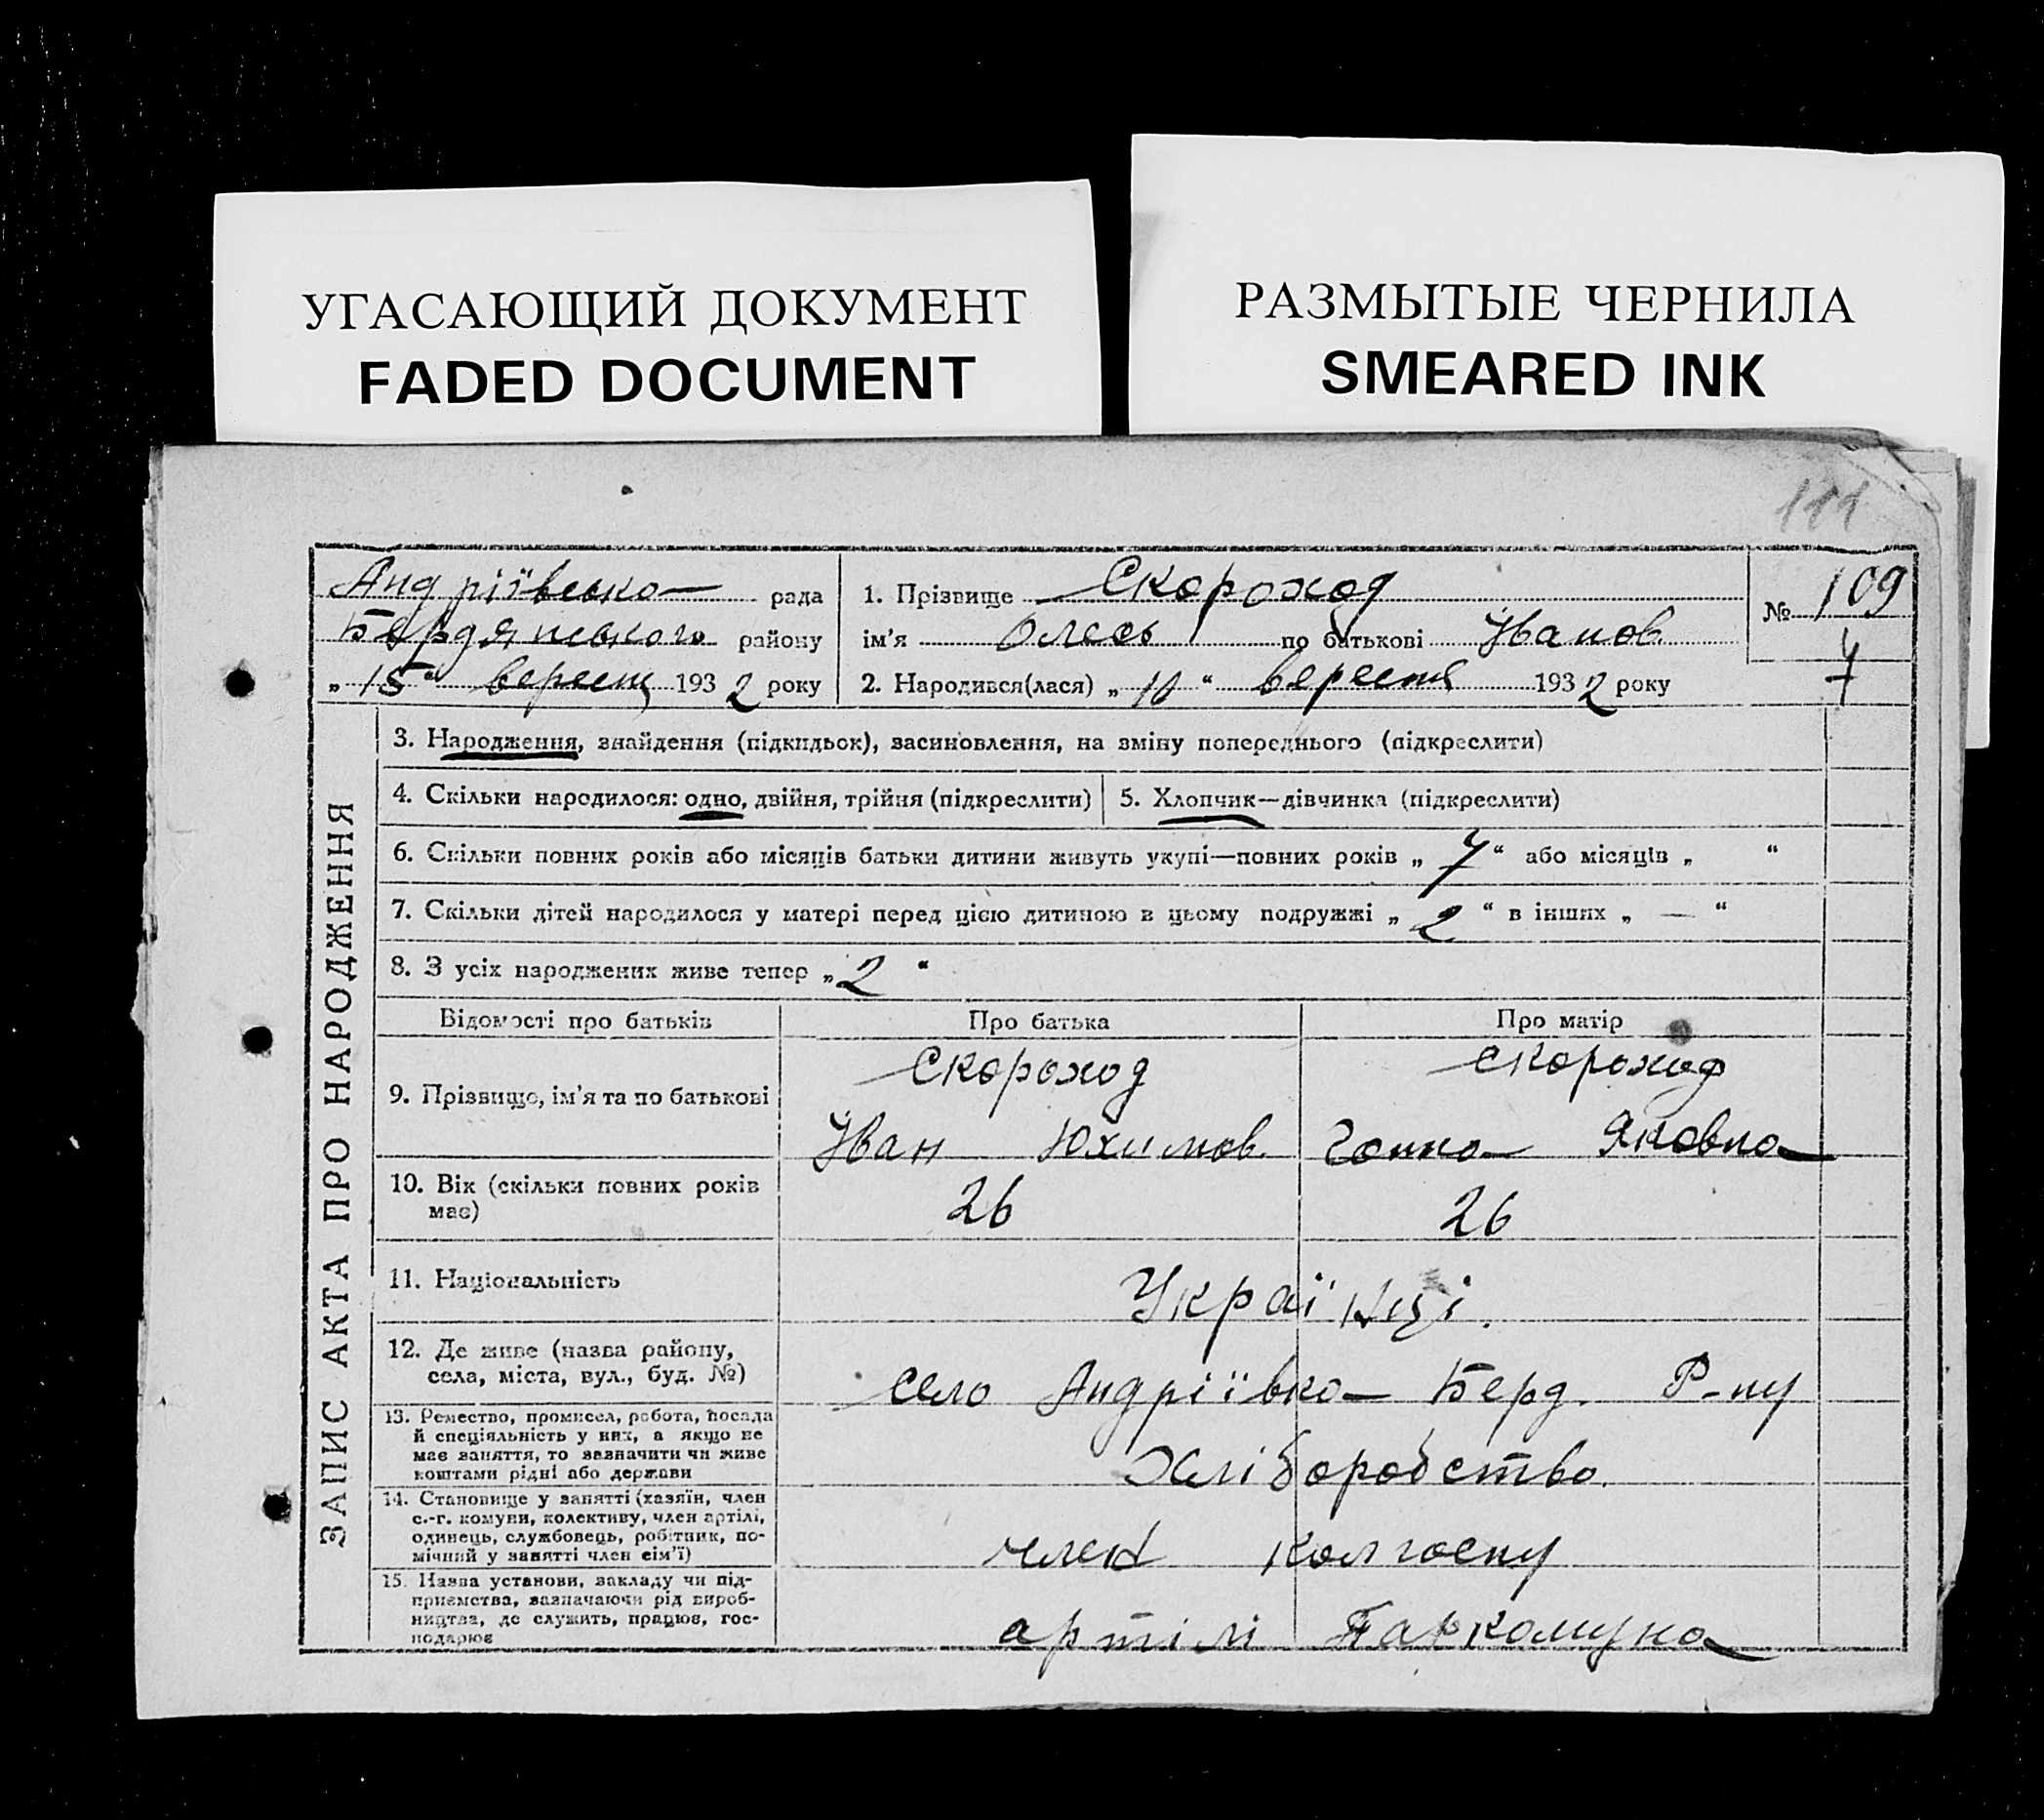 УГАСАЮЩИЙ ДОКУМЕНТ
FADED DOCUMENT
РАЗМЫТЫЕ ЧЕРНИЛА
SMEARED INK
111
Андріївська рада
Бердянського району
„ 15 “ вересня 1932 року
1. Прізвище Скороход
ім’я Олесь по батькові Іванов.
2. Народився(лася) „ 10 “ вересня 1932 року
№ 109
ЗАПИС АКТА ПРО НАРОДЖЕННЯ
3. Народження, знайдення (підкидьок), засиновлення, на зміну попереднього (підкреслити)
4. Скільки народилося: одно, двійня, трійня (підкреслити)
5. Хлопчик—дівчинка (підкреслити)
6. Скільки повних років або місяців батьки дитини живуть укупі—повних років „ 7 “ або місяців „ “
7. Скільки дітей народилося у матері перед цією дитиною в цьому подружжі „ 2 “ в інших „ — “
8. З усіх народжених живе тепер „ 2 “
Відомості про батьків
Про батька
Про матір
9. Прізвище, ім’я та по батькові
Скороход
Іван Юхимов.
Скороход
Ганна Яковна
10. Вік (скільки повних років
має)
26
26
11. Національність
Українці.
12. Де живе (назва району,
села, міста, вул., буд. №)
село Андріївка Берд. Р-ну
13. Ремество, промисел, робота, посада
й спеціяльність у них, а якщо не
має заняття, то зазначити чи живе
коштами рідні або держави
Хліборобство.
14. Становище у занятті (хазяїн, член
с.-г. комуни, колективу, член артілі,
одинець, службовець, робітник, по-
мічний у занятті член сім’ї)
член колгоспу
15. Назва установи, закладу чи під-
приємства, зазначаючи рід вироб-
ництва, де служить, працює, гос-
подарює
артілі Паркомуна